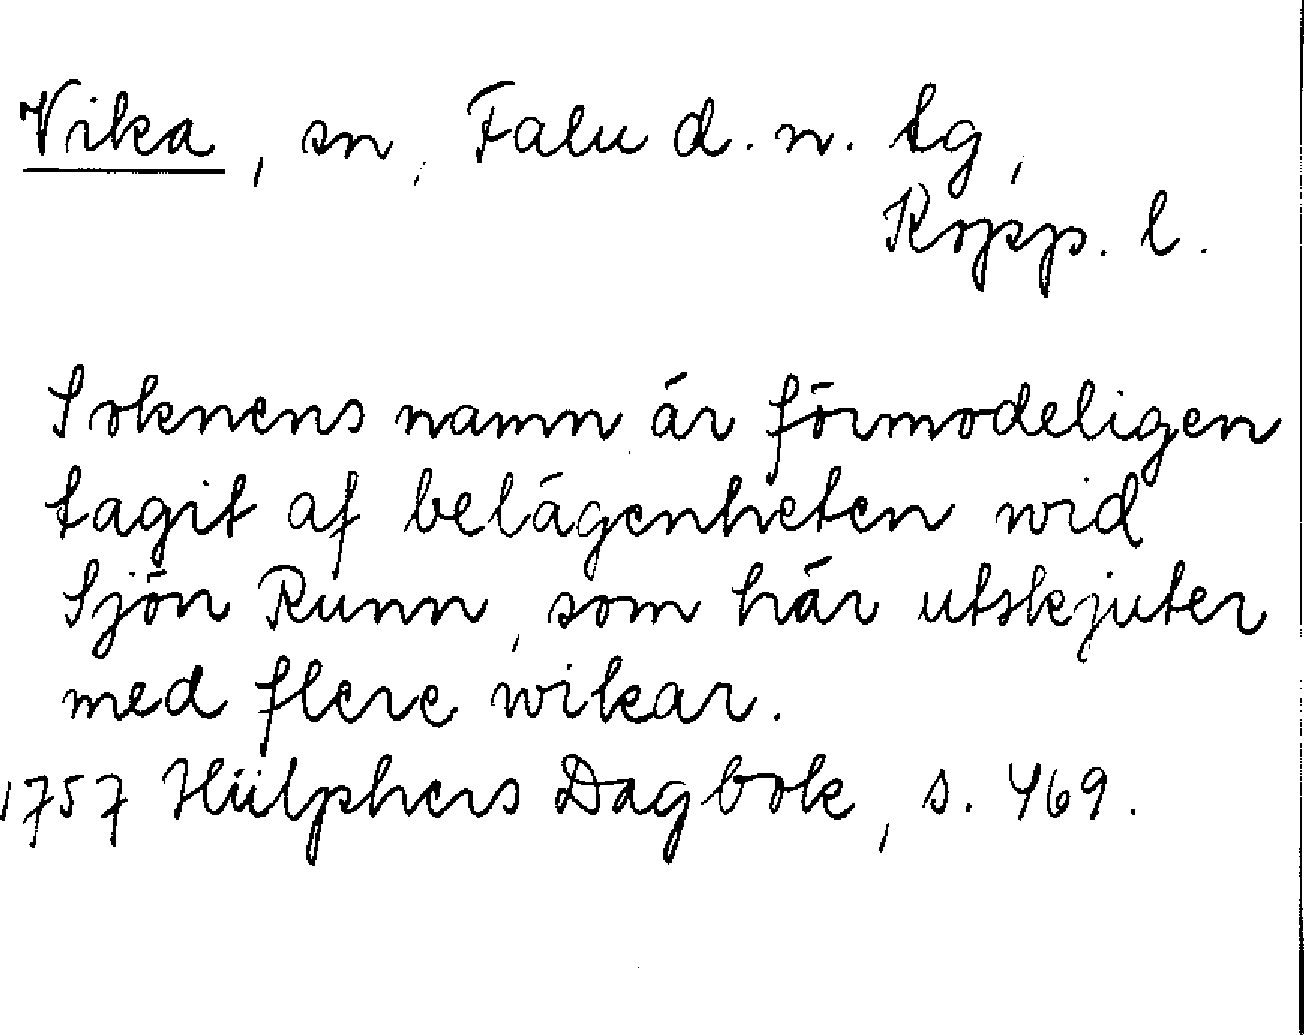 Vika, sn, Falu d. n. tg,
Kopp. l.
Soknens namn är förmodeligen
tagit af belägenheten wid
Sjön Runn, som här utskjuter
med flere wikar.
1757 Hülphers Dagbok, s. 469.